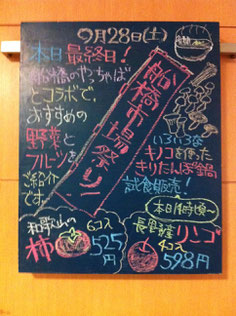 9月28日(土)
本日最終日!
船橋のやっちゃば
とコラボで、
おすすめの
野菜と
フルーツを
ご紹介
です。
船橋市場祭り!
いろいろな
キノコを使った
きりたんぽ鍋
試食販売!
本日14時頃〜
和歌山の
柿
6コ入
525円
長野産リンゴ
4コ入
598円